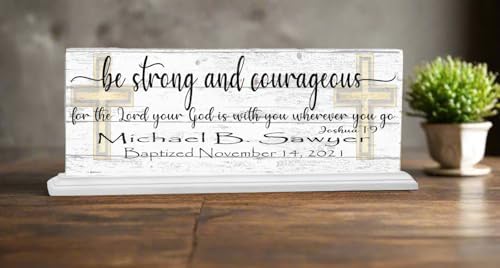 be strong and courageous
for the Lord your God is with you wherever you go
Joshua 1:9
Michael B. Sawyer
Baptized November 14, 2021